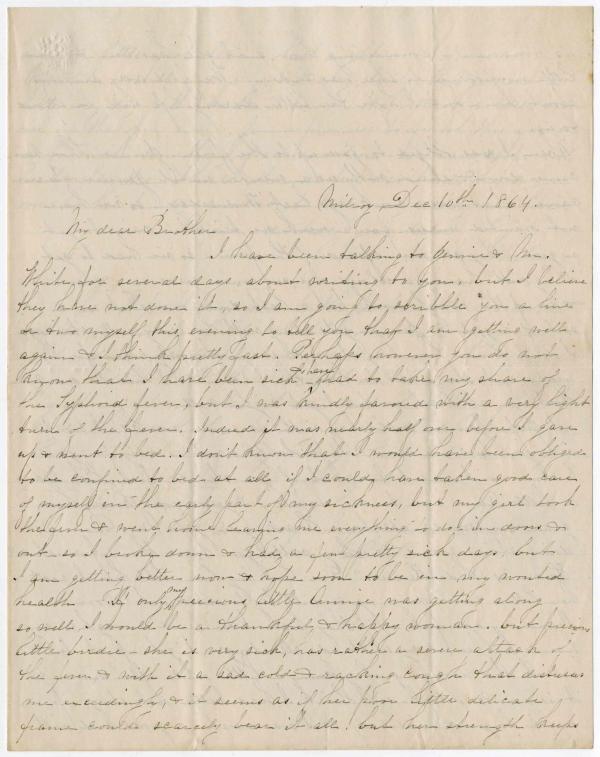 Milroy, Dec 10th 1864.
My dear Brother
I have been talking to Jennie & Mr.
White for several days about writing to you, but I believe
they have not done it, so I am going to scribble you a line
or two myself this evening to tell you that I am getting well
again & I think pretty fast. Perhaps however you do not
know that I have been sick - I have had to take my share of
the Typhoid fever, but I was kindly favored with a very light
turn of the fever. Indeed it was nearly half over before I gave
up & went to bed. I don't know that I would have been obliged
to be confined to bed at all if I could have taken good care
of myself in the early part of my sickness, but my girl took
the fever & went home leaving me everything to do in doors &
out so I broke down & had a few pretty sick days, but
I am getting better now & hope soon to be in my wonted
health. If only my precious little Annie was getting along
so well I would be a thankful & happy woman. but precious
little birdie - she is very sick, has rather a severe attack of
the fever & with it a sad cold & racking cough that distresses
me exceedingly, & it seems as if her poor little delicate
frame could scarcely bear it all. but her strength keeps